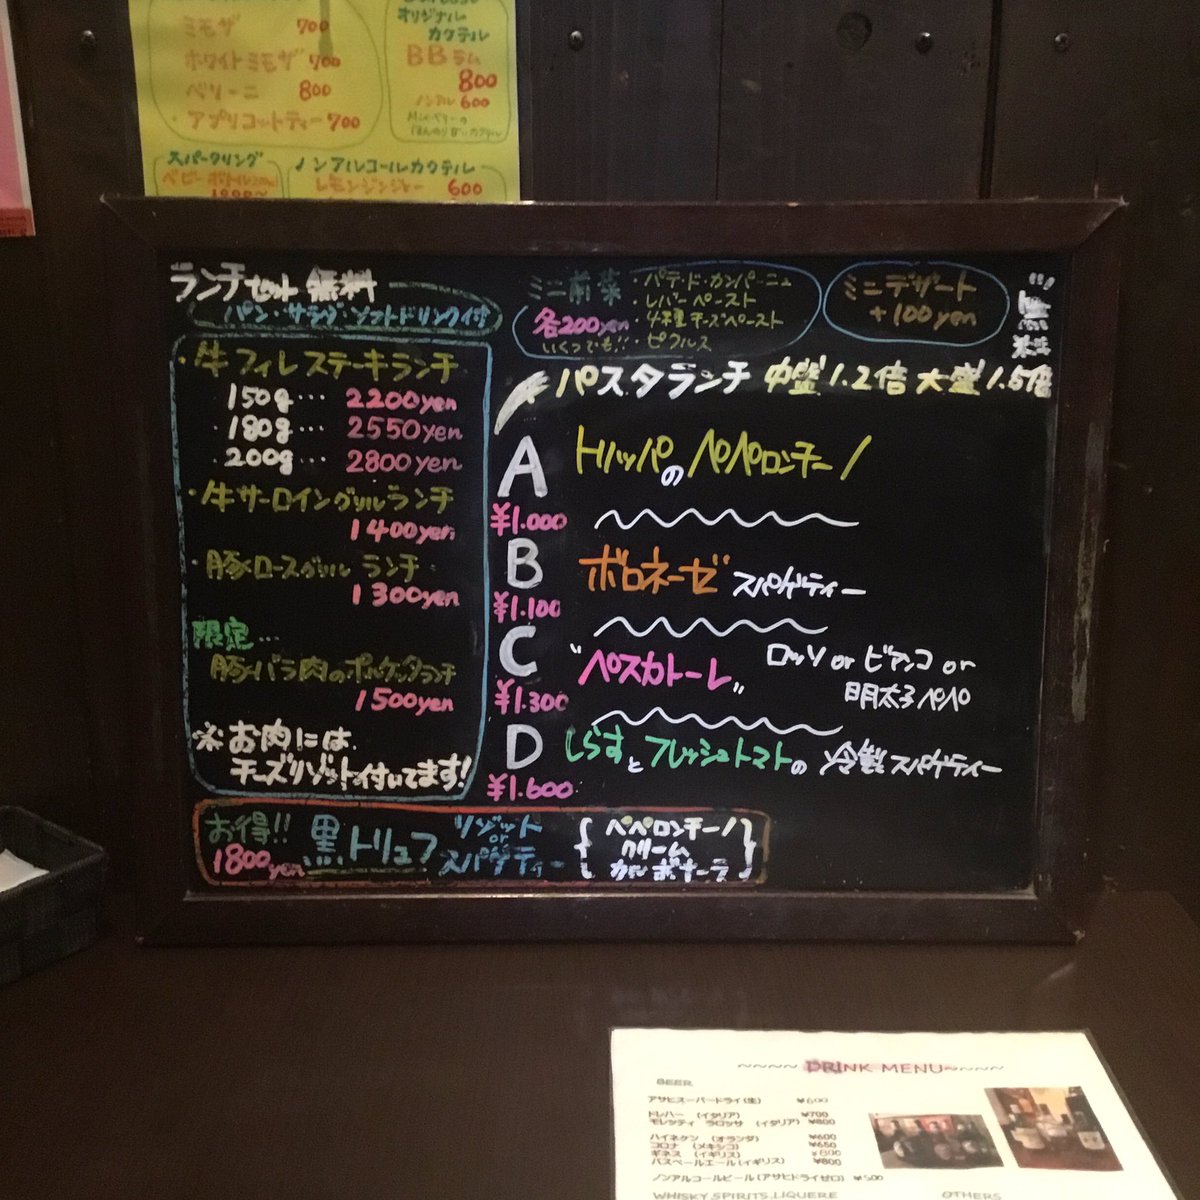 ミモザ 700
ホワイトミモザ 700
ベリーニ 800
・アプリコットティー 700
オリジナル
カクテル
BBラム
800
ノンアル 600
スパークリング
ベビーボトル
ノンアルコールカクテル
レモンジンジャー 600
ランチセット 無料
パン・サラダ・ソフトドリンク付
・牛フィレステーキランチ
150g… 2200yen
180g… 2550yen
200g… 2800yen
・牛サーロイングリルランチ
1400yen
・豚ロースグリルランチ
1300yen
限定…
豚バラ肉のポルケッタランチ
1500yen
※お肉には
チーズリゾット付いてます!
ミニ前菜
各200yen
いくつでも!!
・パテ・ド・カンパーニュ
・レバーペースト
・4種チーズペースト
・ピクルス
ミニデザート
+100yen
無料
パスタランチ 中盛1.2倍 大盛1.5倍
A トリッパのペペロンチーノ
¥1.000
B ボロネーゼ スパゲティー
¥1.100
C "ペスカトーレ" ロッソ or ビアンコ or
明太子ペペ
¥1.300
D しらすとフレッシュトマトの 冷製スパゲティー
¥1.600
お得!!
1800yen
黒トリュフ
リゾット
or
スパゲティー
ペペロンチーノ
クリーム
カルボナーラ
DRINK MENU
BEER
アサヒスーパードライ(生) ¥600
ドレハー (イタリア) ¥700
モレッティ ラロッサ (イタリア) ¥800
ハイネケン (オランダ) ¥600
コロナ (メキシコ) ¥650
ギネス (イギリス) ¥800
バスペールエール(イギリス) ¥800
ノンアルコールビール(アサヒドライゼロ) ¥500
WHISKY,SPIRITS,LIQUERE
OTHERS